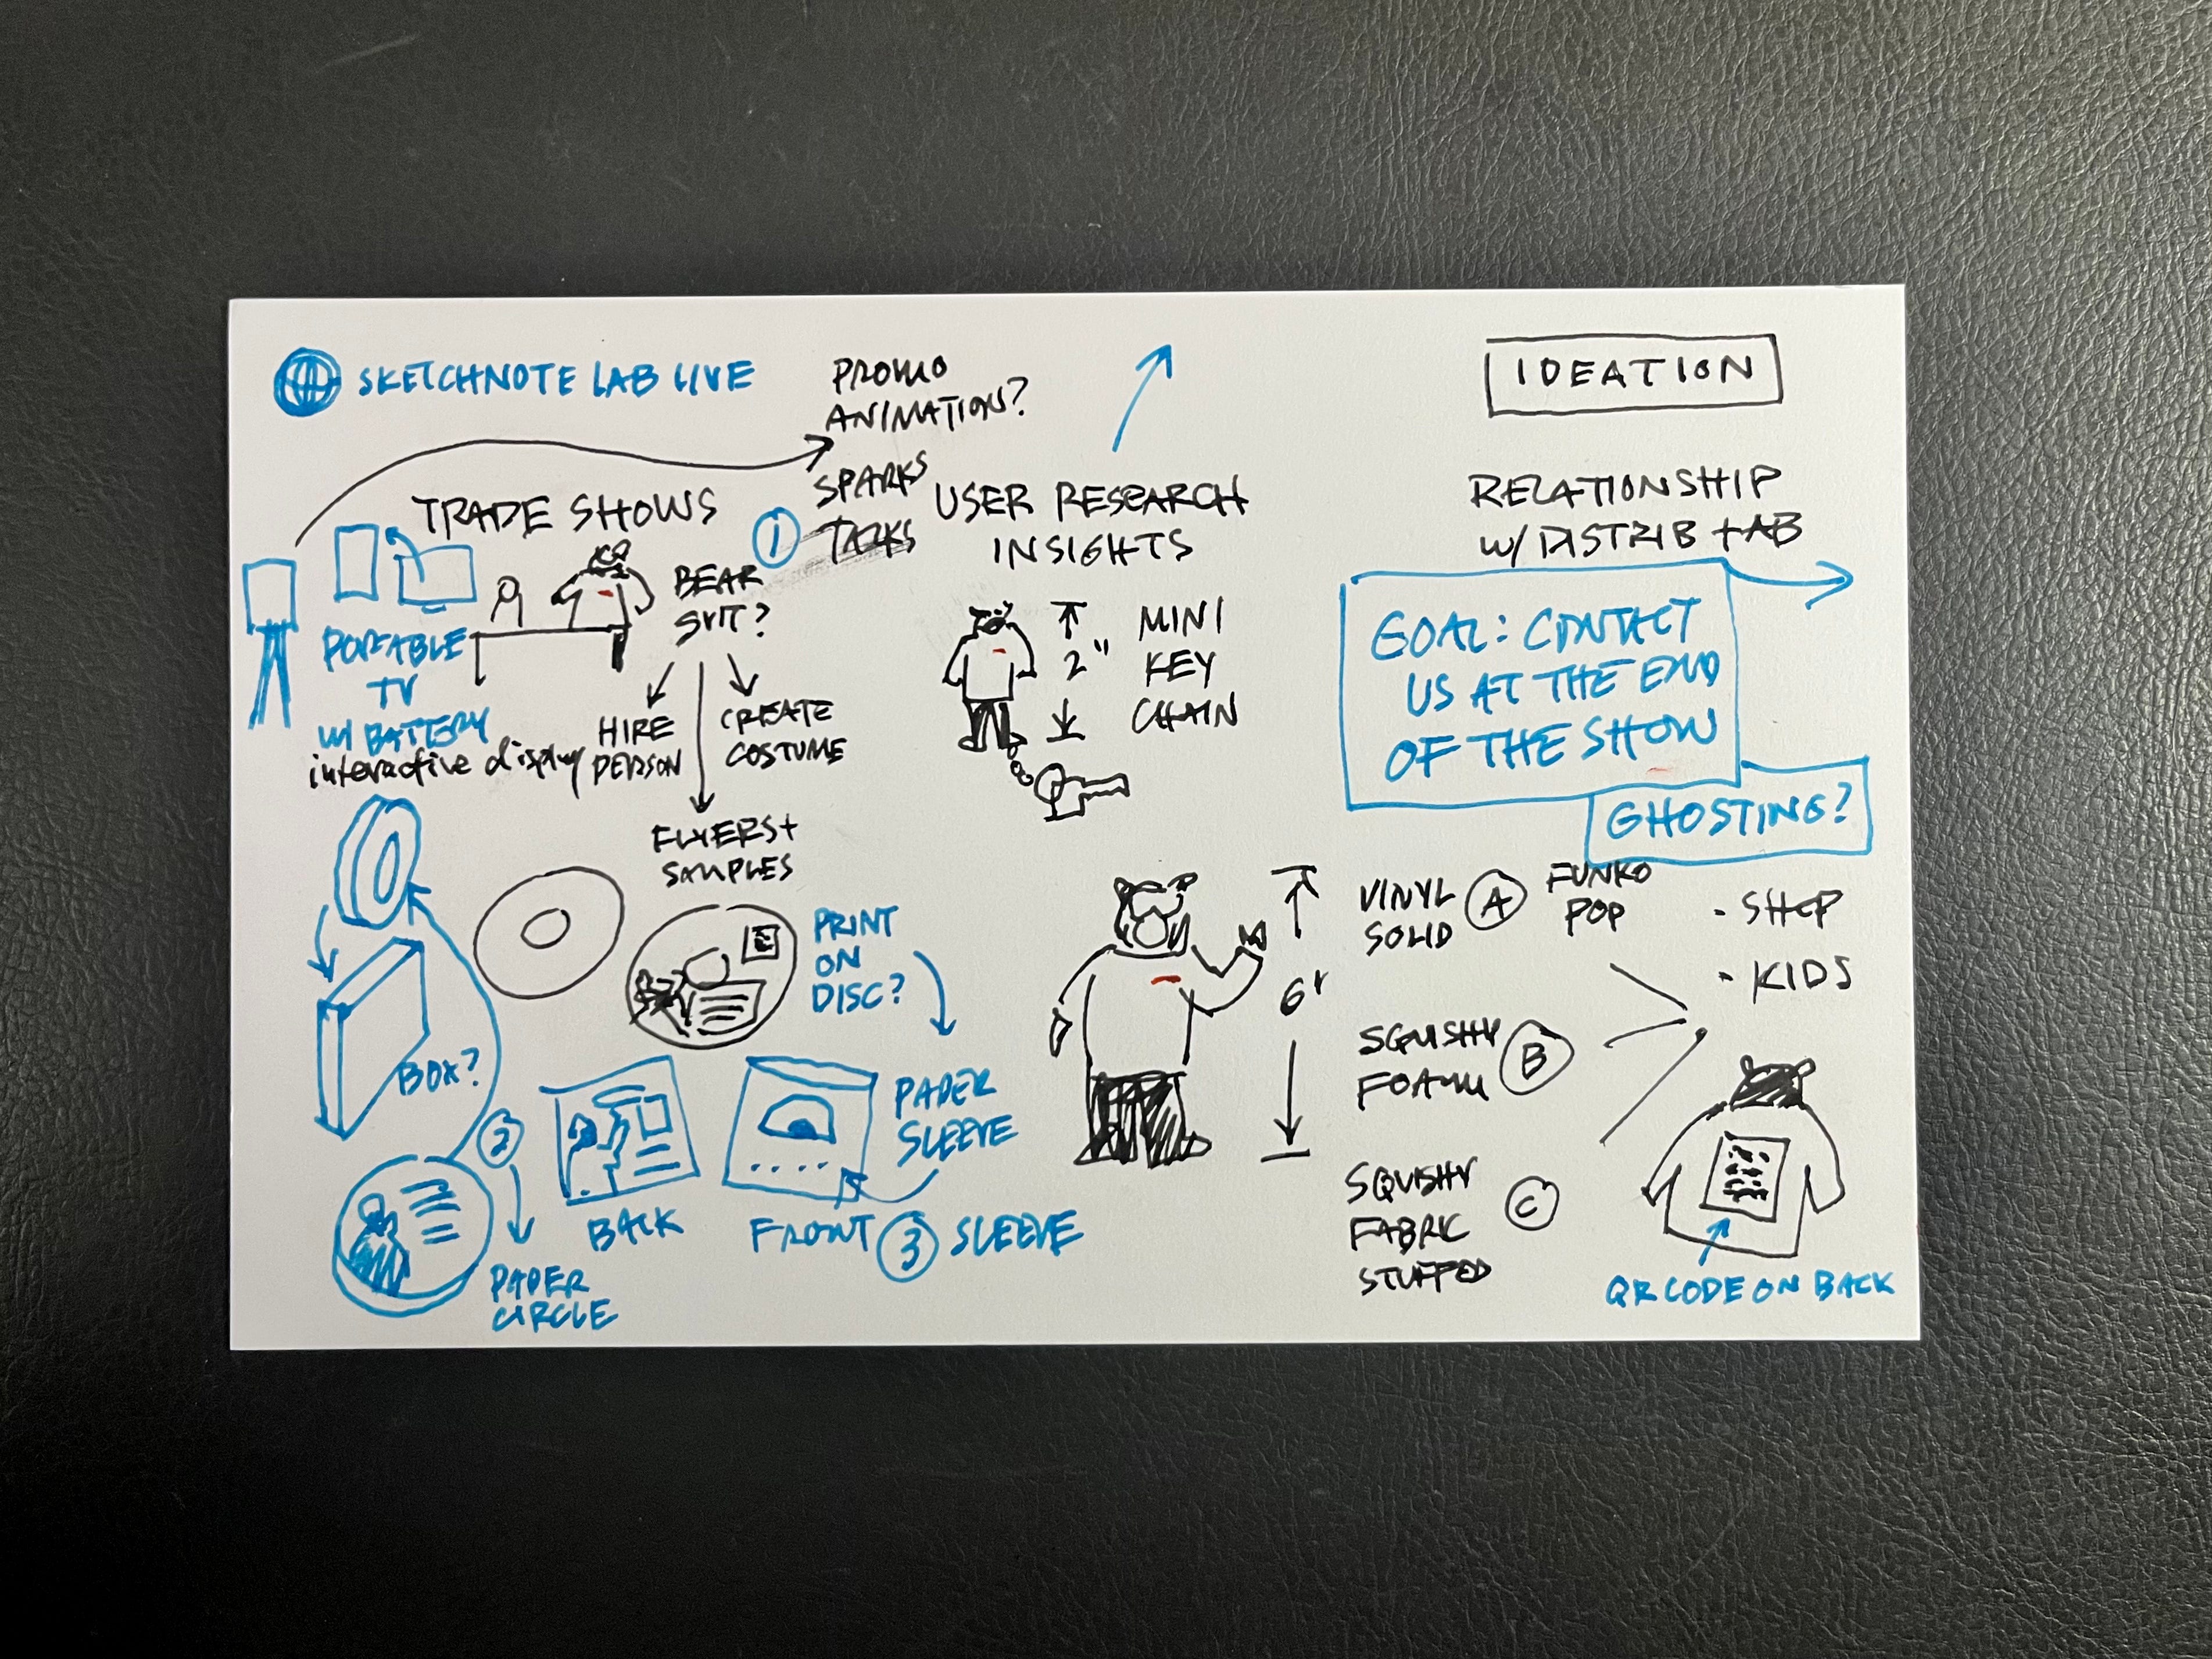 SKETCHNOTE LAB LIVE
PROMO
ANIMATION?
IDEATION
TRADE SHOWS
1
SPARKS
TALKS
BEAR
SUIT?
PORTABLE
TV
W/ BATTERY
interactive display
HIRE
PERSON
CREATE
COSTUME
FLYERS +
SAMPLES
USER RESEARCH
INSIGHTS
2"
MINI
KEY
CHAIN
RELATIONSHIP
W/ DISTRIB + AB
GOAL: CONTACT
US AT THE END
OF THE SHOW
GHOSTING?
PRINT
ON
DISC?
BOX?
2
PAPER
CIRCLE
BACK
FRONT
3 SLEEVE
PAPER
SLEEVE
6"
VINYL
SOLID
A
FUNKO
POP
• SHOP
• KIDS
SQUISHY
FOAM
B
SQUISHY
FABRIC
STUFFED
C
QR CODE ON BACK